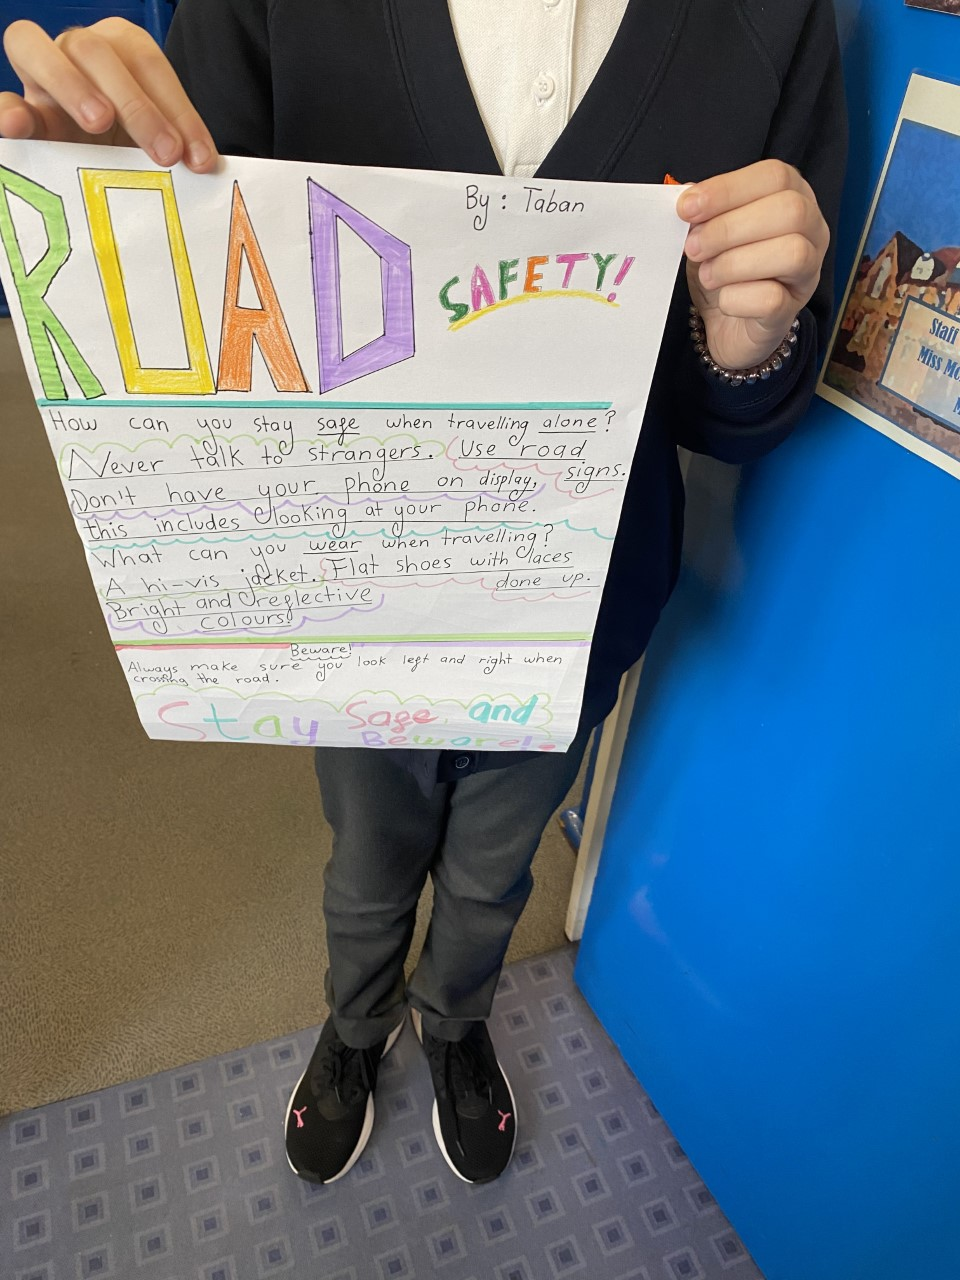 ROAD
By: Taban
SAFETY!
How can you stay safe when travelling alone?
Never talk to strangers. Use road
signs.
Don't have your phone on display,
this includes looking at your phone.
What can you wear when travelling?
A hi-vis jacket. Flat shoes with laces
done up.
Bright and reflective
colours!
Beware!
Always make sure you look left and right when
crossing the road.
Stay Safe and
Beware!
Staff
Miss